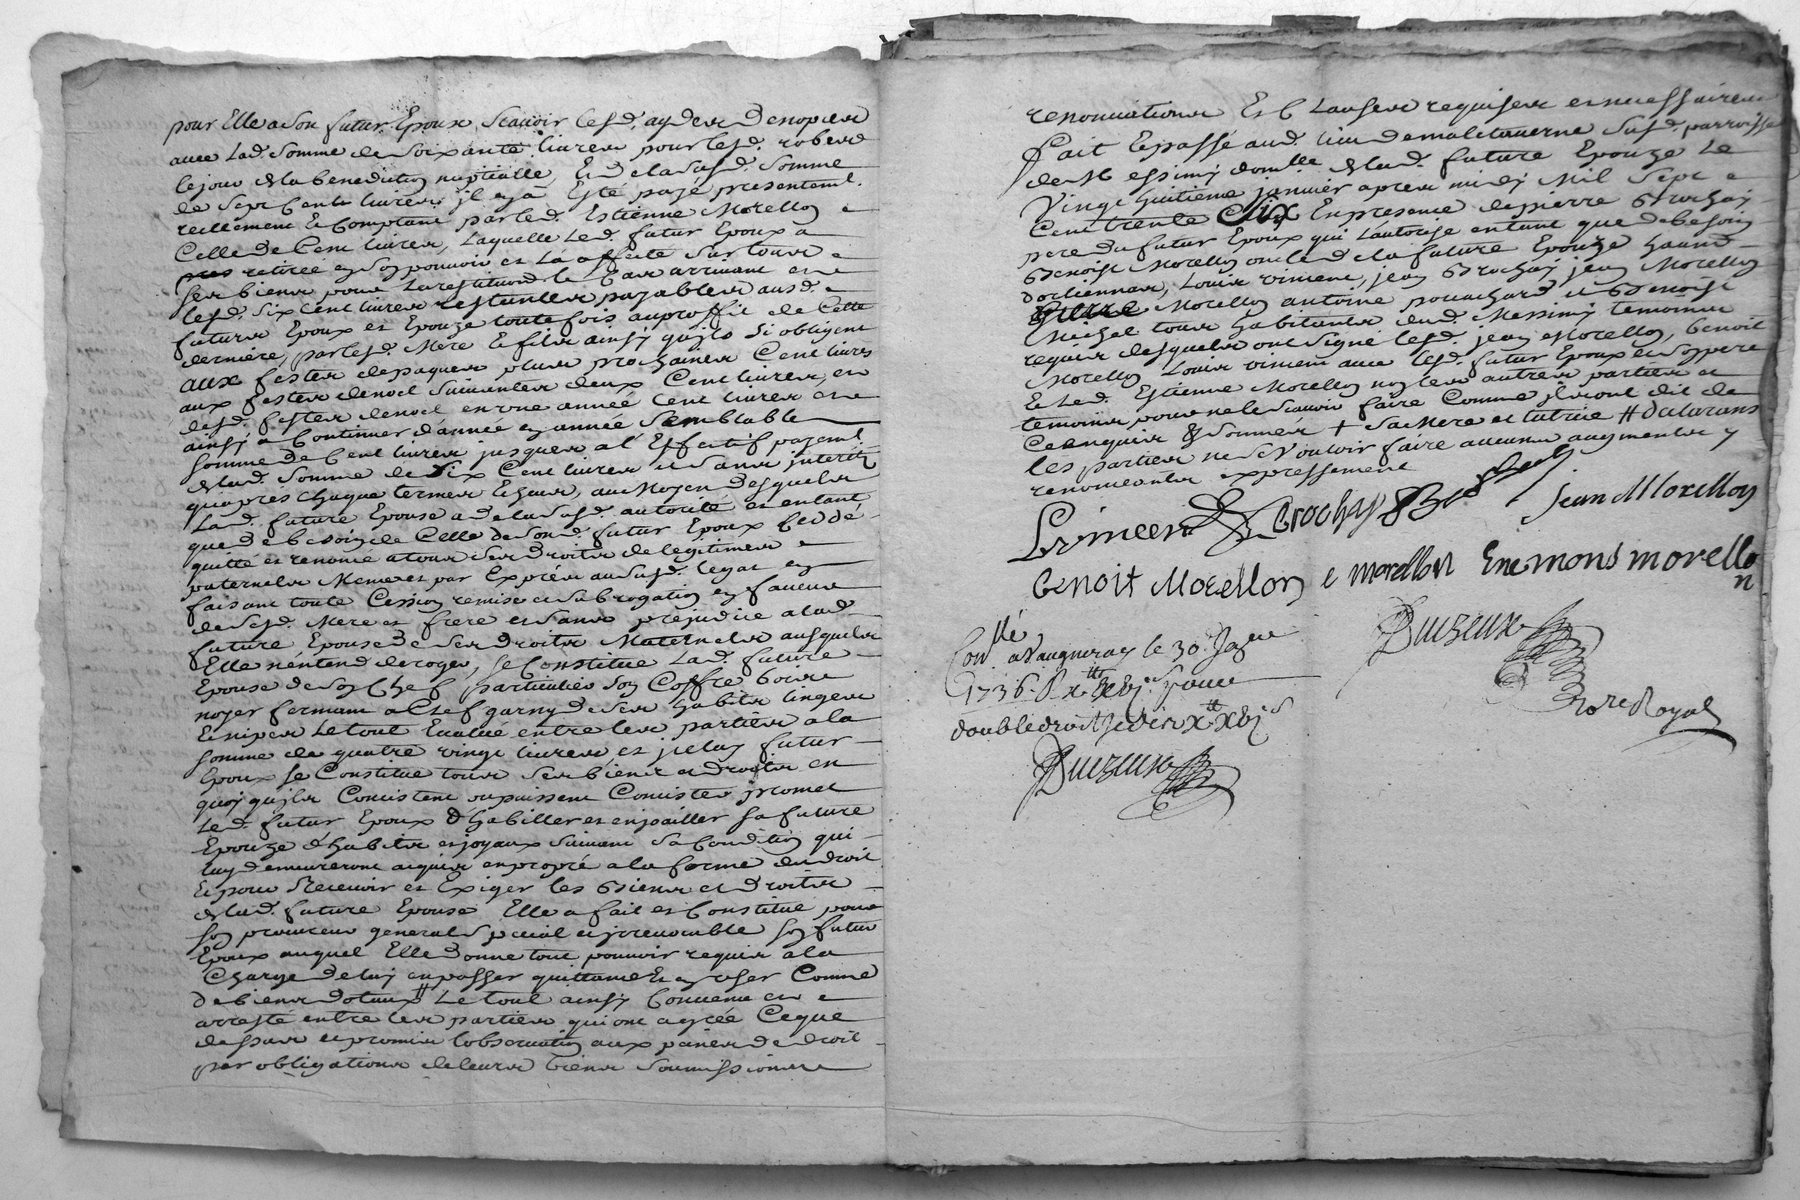 pour Elle a Son futur Epoux Scavoir lesd. ayder De nopces
avec Lad. Somme de Soixante livres pour lesd. robes
le jour de la benediction nuptialle Et de la Susd. Somme
de Sept Cents livres il a Esté payé presentemt.
reellement Et Comptant par led. Estienne Morellon
Celle de Cent livres, Laquelle Led. futur Epoux a
retirée en Son pouvoir et La affecté Sur tous
Ses biens pour La restituon le Cas arrivant et
lesd. Six Cent livres restantes payables ausd.
futurs Epoux et Epouze toute fois au proffit de Cette
derniere, par lesd. Mere Et fils ainsy quils Si obligent
aux festes de paques plus prochaines Cent livres
aux festes de noel Suivantes deux Cent livres, et
desd. festes de noel en une année Cent livres et
ainsy a Continuer d'année en année Semblable
Somme de Cent livres jusques a l'Effectif payemt.
de lad. Somme de Six Cent livres et Sans interets
qu'apres Chaque termes Echeus, au Moyen desquels
Lad. future Epouse a de la Susd. autorité et entant
que de besoin de Celle de Sond. futur Epoux Ceddé
quitté et renoncé a tous Ses Droits de legitimes
paternels Memes et par Exprés au Susd. legat en
faisant toute Cession remise et Subrogation en faveur
de Sesd. Mere et frere et Sans prejudice a lad.
future Epouse de Ses Droits Maternels ausquels
Elle n'entend deroger, Se Constitue Lad. future
Epouse de Son Chef particulier Son Coffre bois
noyer fermant a Clef garny de Ses habits linges
Et nipes Le tout Evalué entre les parties a la
Somme de quatre vingt livres, et iceluy futur
Epoux Se Constitue tous Ses biens et droits en
quoy qu'ils Concistent ou puissent Concister promet
Led. futur Epoux d'habiller et enjoailler Sa future
Epouze d'habits et joyaux Suivant Sa Condition qui
luy demeureront acquis en propre a la forme du droit
Et pour Recevoir et Exiger les Biens et Droits
de lad. future Epouse Elle a fait et Constitué pour
Son procureur general Special et irrevocable Son futur
Epoux auquel Elle Donne tout pouvoir requis a la
Charge de luy en passer quittance Et en user Comme
De biens Dotaux # Le tout ainsy Convenu et
arresté entre les parties qui ont agréé Ceque
dessus et promis l'observation aux peines de droit
par obligations de leurs biens Soumissions
renonciations Et Clauses requises et necessaires
fait Et passé aud. lieu de malitaverne Susd. parroisse
de Messimy domlle. de lad. future Epouze Le
Vingt huitieme janvier apres midy Mil Sept
Cent trente Six En presence de pierre Brochay
pere du futur Epoux qui L'autorise entant que de besoin
Benoist Morellon oncle de la future Epouze
d'orliennas, Louis vincent, jean Brochay jean Morellon
Morellon antoine et Benoist
Michel tous habitants dud. Messimy temoins
requis desquels ont Signé lesd. jean Morellon, benoit
Morellon Louis vincent avec lesd. futur Epoux et Son pere
Et Led. Estienne Morellon non les autres parties et
temoins pour ne le Scavoir faire Comme ils ont dit de
Ce enquis & Sommés + Sa Mere et tutrice # declarans
les parties ne Vouloir faire aucunes augmentes y
renonceants expressement
L vincent Brochay
jean Morellon
benoit Morellon e morellon Enemons morello
n
Conllé. a Vaugneray le 30. Janer
1736.
double droit
Duezeux
Duezeux
Nore Royal